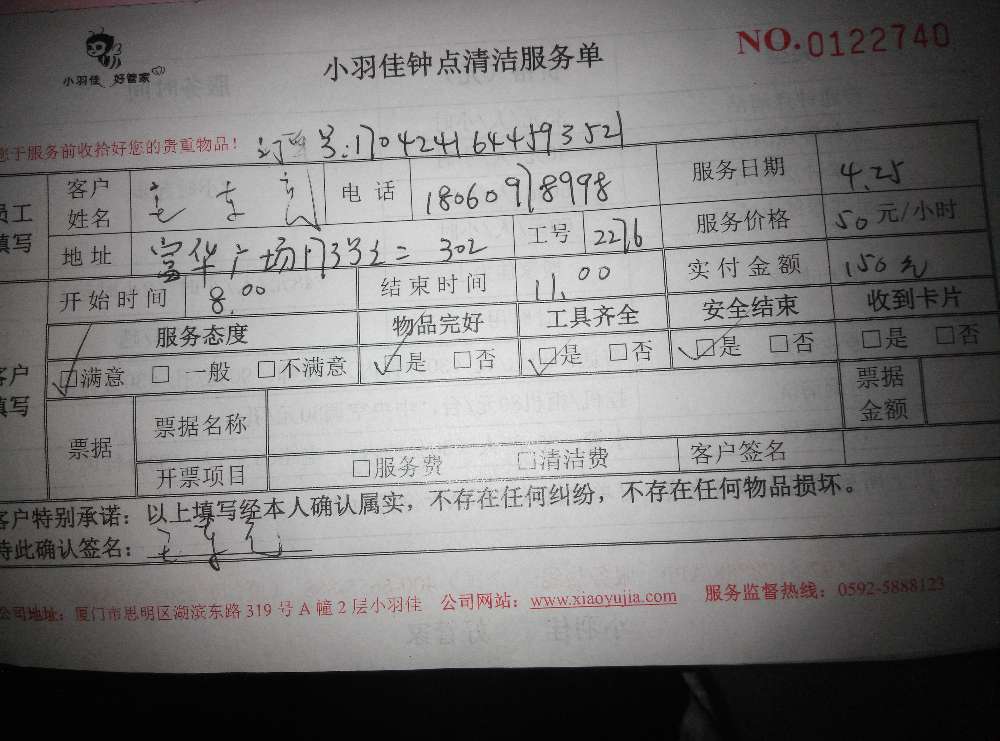 小羽佳 好管家
小羽佳钟点清洁服务单
NO.0122740
您于服务前收拾好您的贵重物品!
订单号:1704241644593521
员工填写
客户姓名
电话 18060978998
服务日期 4.25
地址 富华广场 302
工号 2276
服务价格 50元/小时
开始时间 8.00
结束时间 11.00
实付金额 150元
客户填写
服务态度 物品完好 工具齐全 安全结束 收到卡片
□满意 □一般 □不满意 □是 □否 □是 □否 □是 □否 □是 □否
票据 票据名称 票据金额
开票项目 □服务费 □清洁费 客户签名
客户特别承诺:以上填写经本人确认属实,不存在任何纠纷,不存在任何物品损坏。
特此确认签名:
公司地址:厦门市思明区湖滨东路319号A幢2层小羽佳 公司网站:www.xiaoyujia.com 服务监督热线:0592-5888123